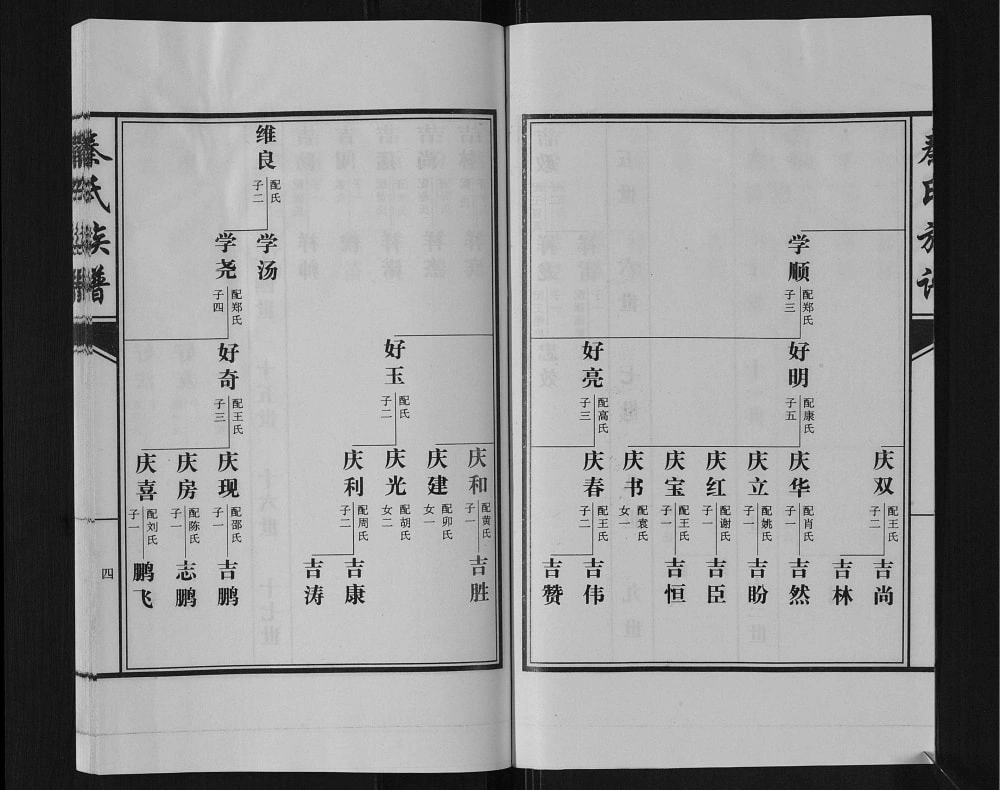 秦氏族谱
学顺
配郑氏
子三
好明
配康氏
子五
好亮
配高氏
子三
庆双
配王氏
子二
庆华
配肖氏
子一
庆立
配姚氏
子一
庆红
配谢氏
子一
庆宝
配王氏
子一
庆书
配袁氏
女一
庆春
配王氏
子二
吉尚
吉林
吉然
吉盼
吉臣
吉恒
吉伟
吉赞
维良
配氏
子二
学汤
学尧
配郑氏
子四
好玉
配氏
子二
好奇
配王氏
子三
庆和
配黄氏
子一
庆建
配卯氏
女一
庆光
配胡氏
女二
庆利
配周氏
子二
庆现
配邵氏
子一
庆房
配陈氏
子一
庆喜
配刘氏
子一
吉胜
吉康
吉涛
吉鹏
志鹏
鹏飞
秦氏族谱
四